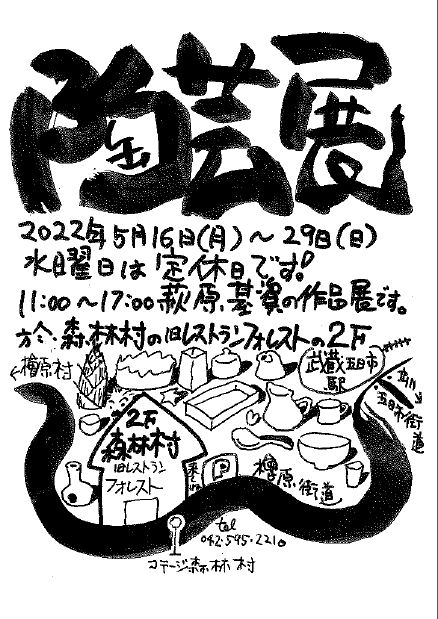 陶芸展
2022年5月16日(月)～29日(日)
水曜日は定休日です!
11:00～17:00 萩原基資の作品展です。
於・森林村の旧レストランフォレストの2F
←檜原村
武蔵五日市
駅
五日市街道
2F
森林村
旧レストラン
フォレスト
P
檜原街道
tel
042-595-2210
コテージ森林村